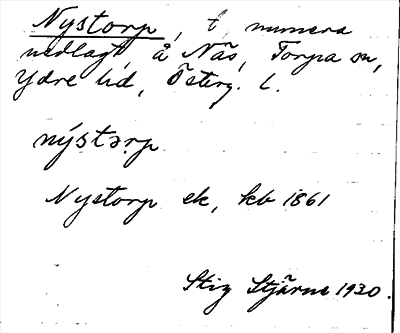 Nystorp, t, numera
nedlagt, å Näs, Torpa sn,
Ydre hd, Österg. l.
nýstərp
Nystorp ek, kb 1861
Stig Stjärne 1930.